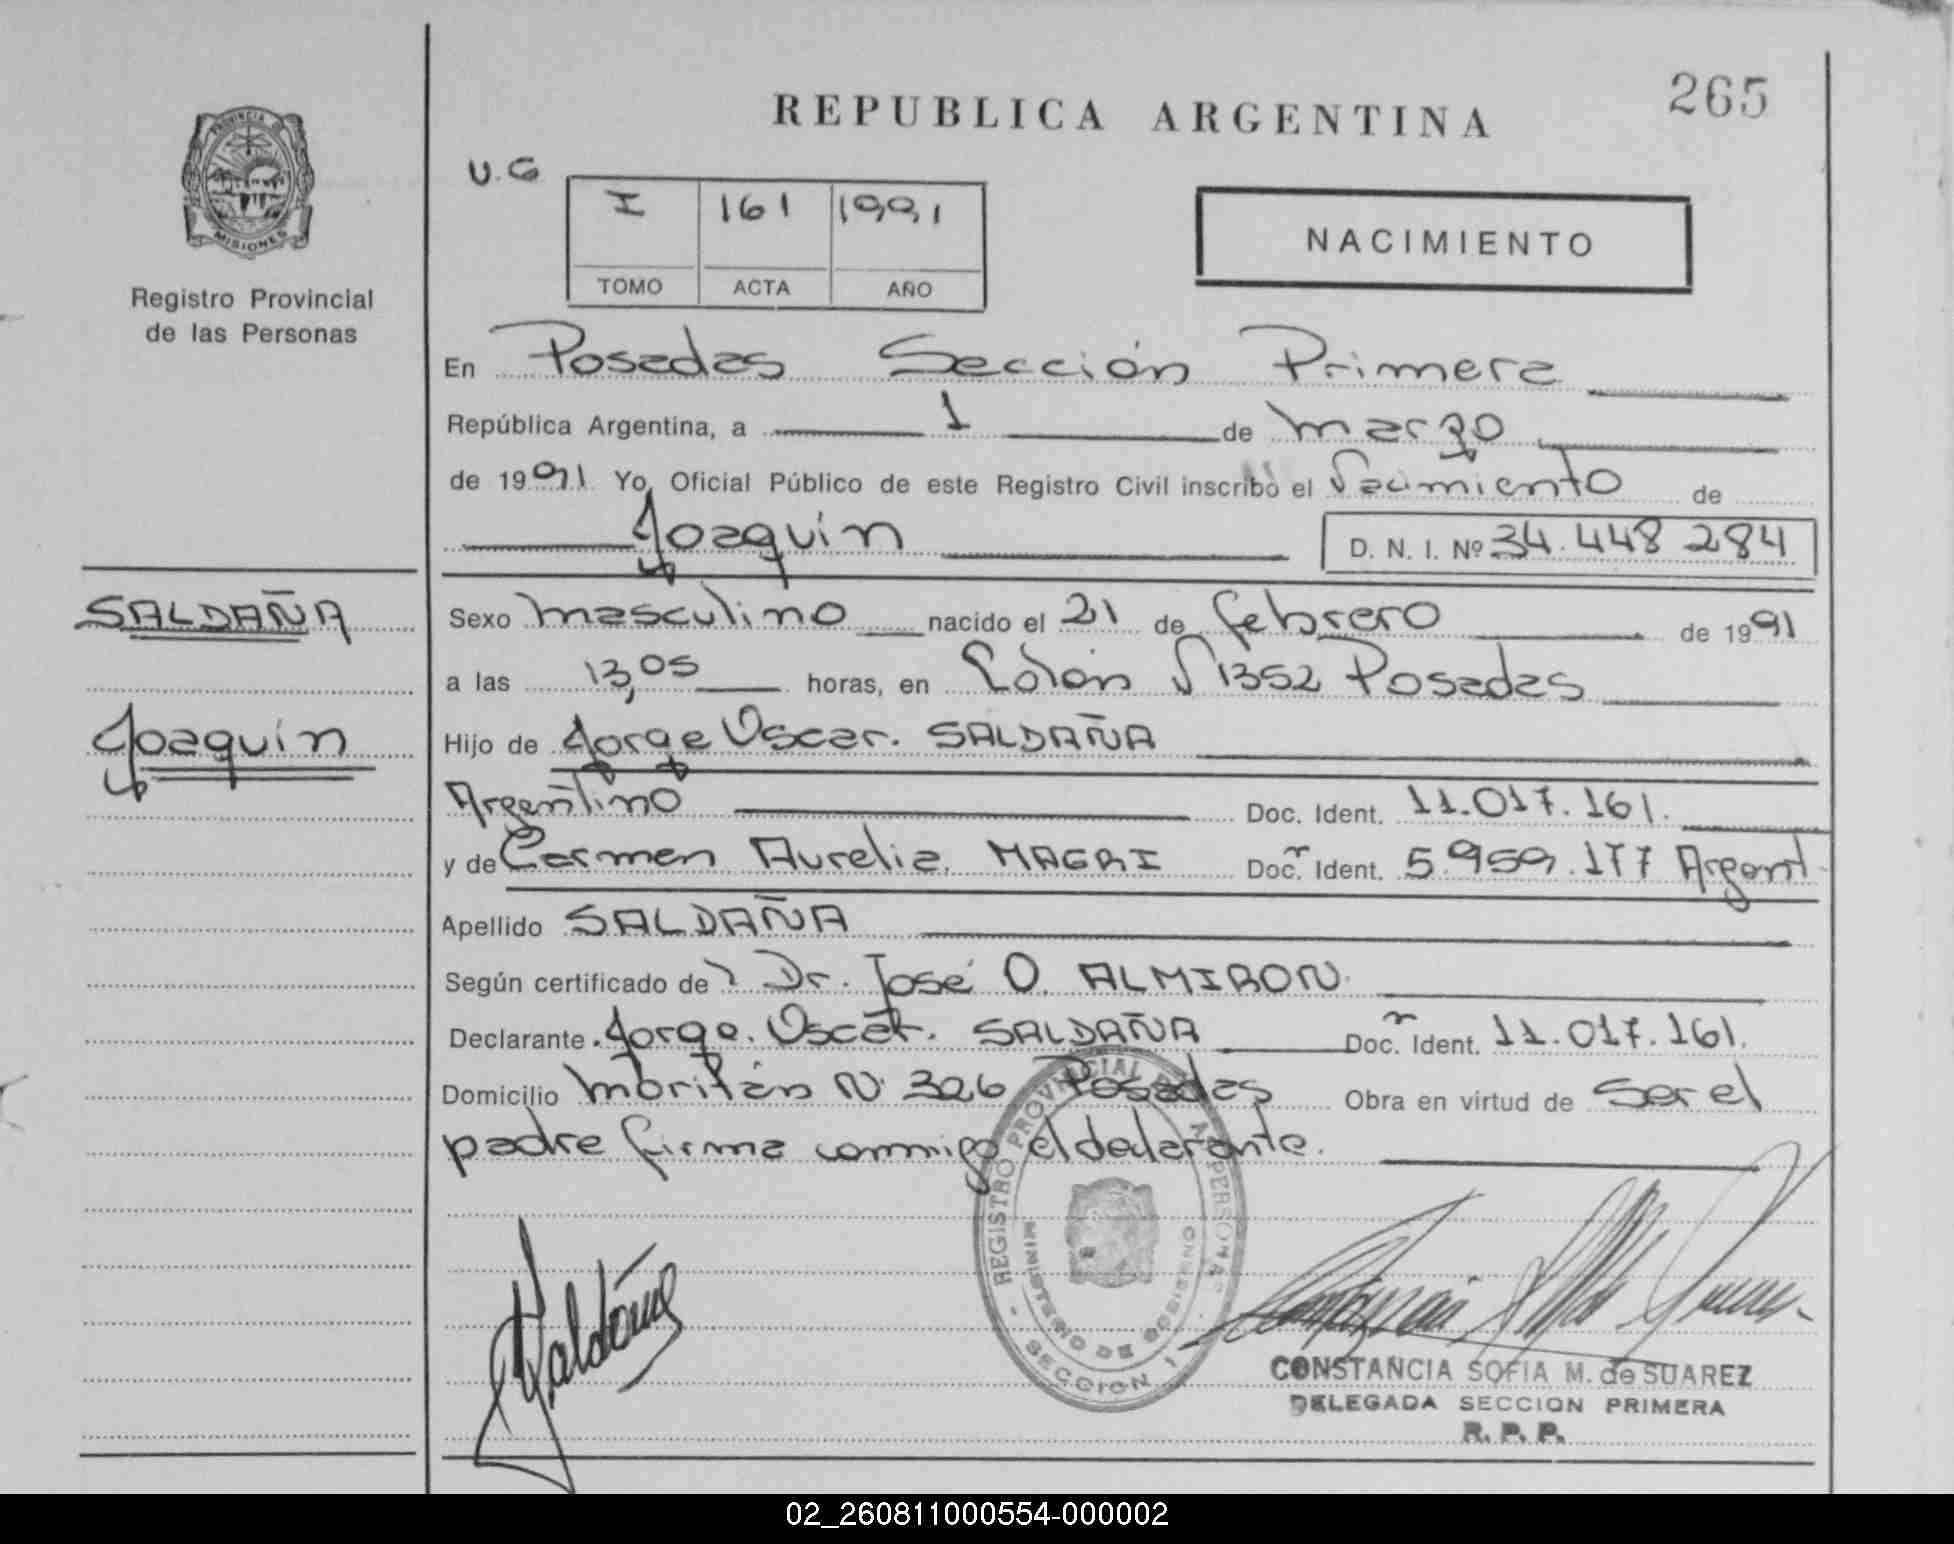 265
REPUBLICA ARGENTINA
PROVINCIA DE
MISIONES
Registro Provincial
de las Personas
U.G
I 161 1991
TOMO ACTA AÑO
NACIMIENTO
En Posadas Sección Primera
República Argentina, a 1 de marzo
de 1991 Yo, Oficial Público de este Registro Civil inscribo el Nacimiento de
Joaquín D. N. I. Nº 34.448 284
SALDAÑA
Joaquín
Sexo masculino nacido el 21 de febrero de 1991
a las 13,05 horas, en Colón N 1352 Posadas
Hijo de Jorge Oscar. SALDAÑA
Argentino Doc. Ident. 11.017.161.
y de Carmen Aurelia. MAGRI Doc. Ident. 5.959.177 Argent
Apellido SALDAÑA
Según certificado de Dr. José O. ALMIRON.
Declarante Jorge. Oscar. SALDAÑA Doc. Ident. 11.017.161.
Domicilio N. 326 Posadas Obra en virtud de ser el
padre firma conmigo el declarante.
REGISTRO PROVINCIAL DE LAS PERSONAS
MINISTERIO DE GOBIERNO
SECCION 1
Saldaña
CONSTANCIA SOFIA M. de SUAREZ
DELEGADA SECCION PRIMERA
R. P. P.
02_260811000554-000002